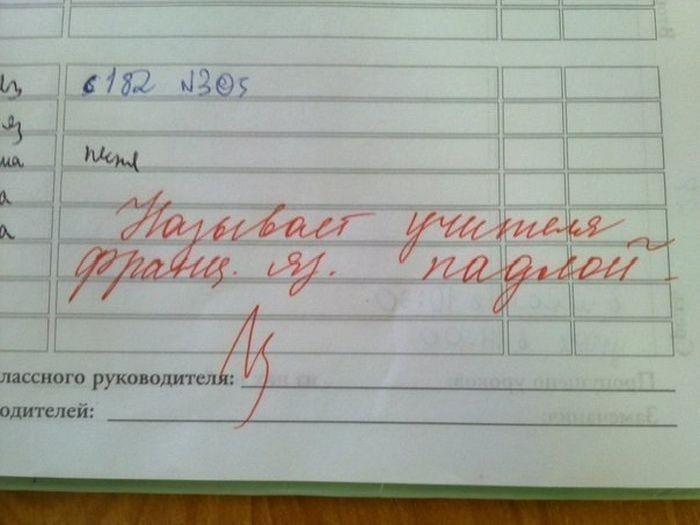 с182 N305
яз
песня
Называет учителя
франц. яз. падлой
лассного руководителя:
одителей: